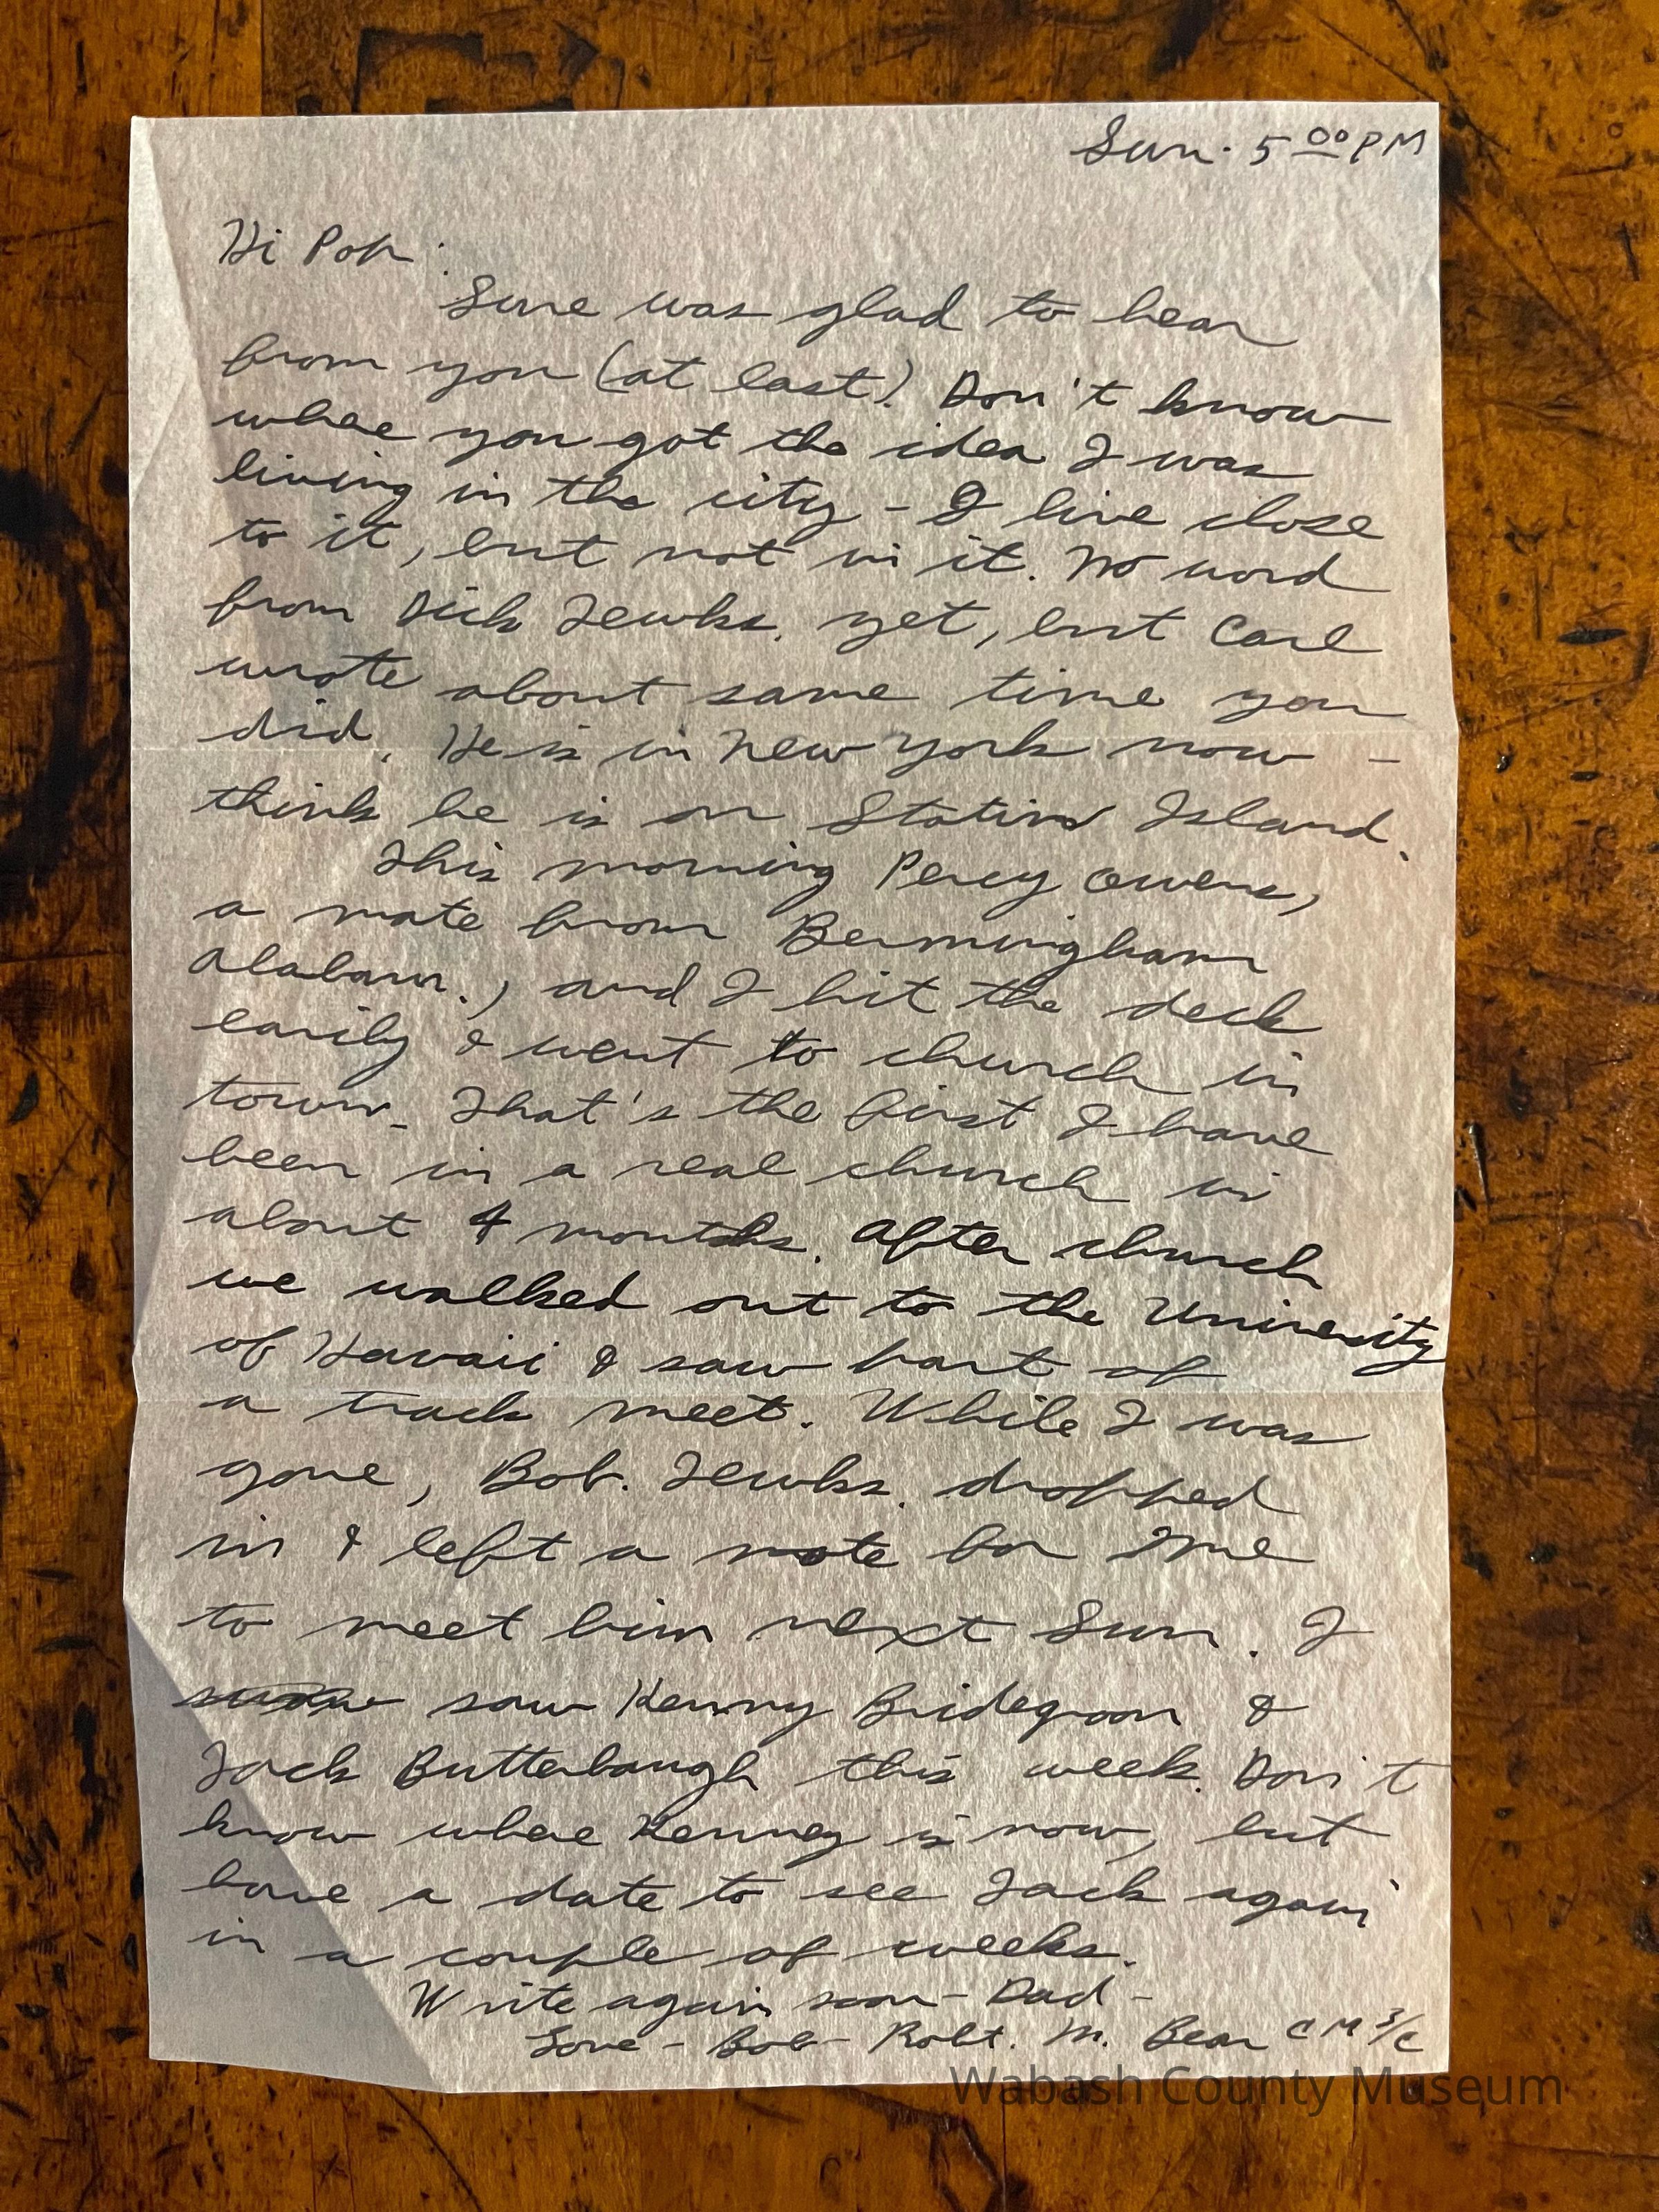 Sun. 5 00 PM
Hi Pop:
Sure was glad to hear
from you (at last). Don't know
whee you got the idea I was
living in the city - I live close
to it, but not in it. No word
from Dick Jewks. yet, but Carl
wrote about same time you
did. He is in New York now -
think he is on Statin Island.
This morning Percy Owens,
a mate from Bermingham
Alabam., and I hit the deck
early & went to church in
town. That's the first I have
been in a real church in
about 4 months. After church
we walked out to the University
of Hawaii & saw part of
a track meet. While I was
gone, Bob. Jewks. dropped
in & left a note for me
to meet him next Sun. I
saw Kenny Bridegroom &
Jack Butterbaugh this week. Don't
know whee Kenney is now, but
have a date to see Jack again
in a couple of weeks.
Write again soon - Dad -
Love - Bob - Robt. M. Bear CM 3/c
Wabash County Museum